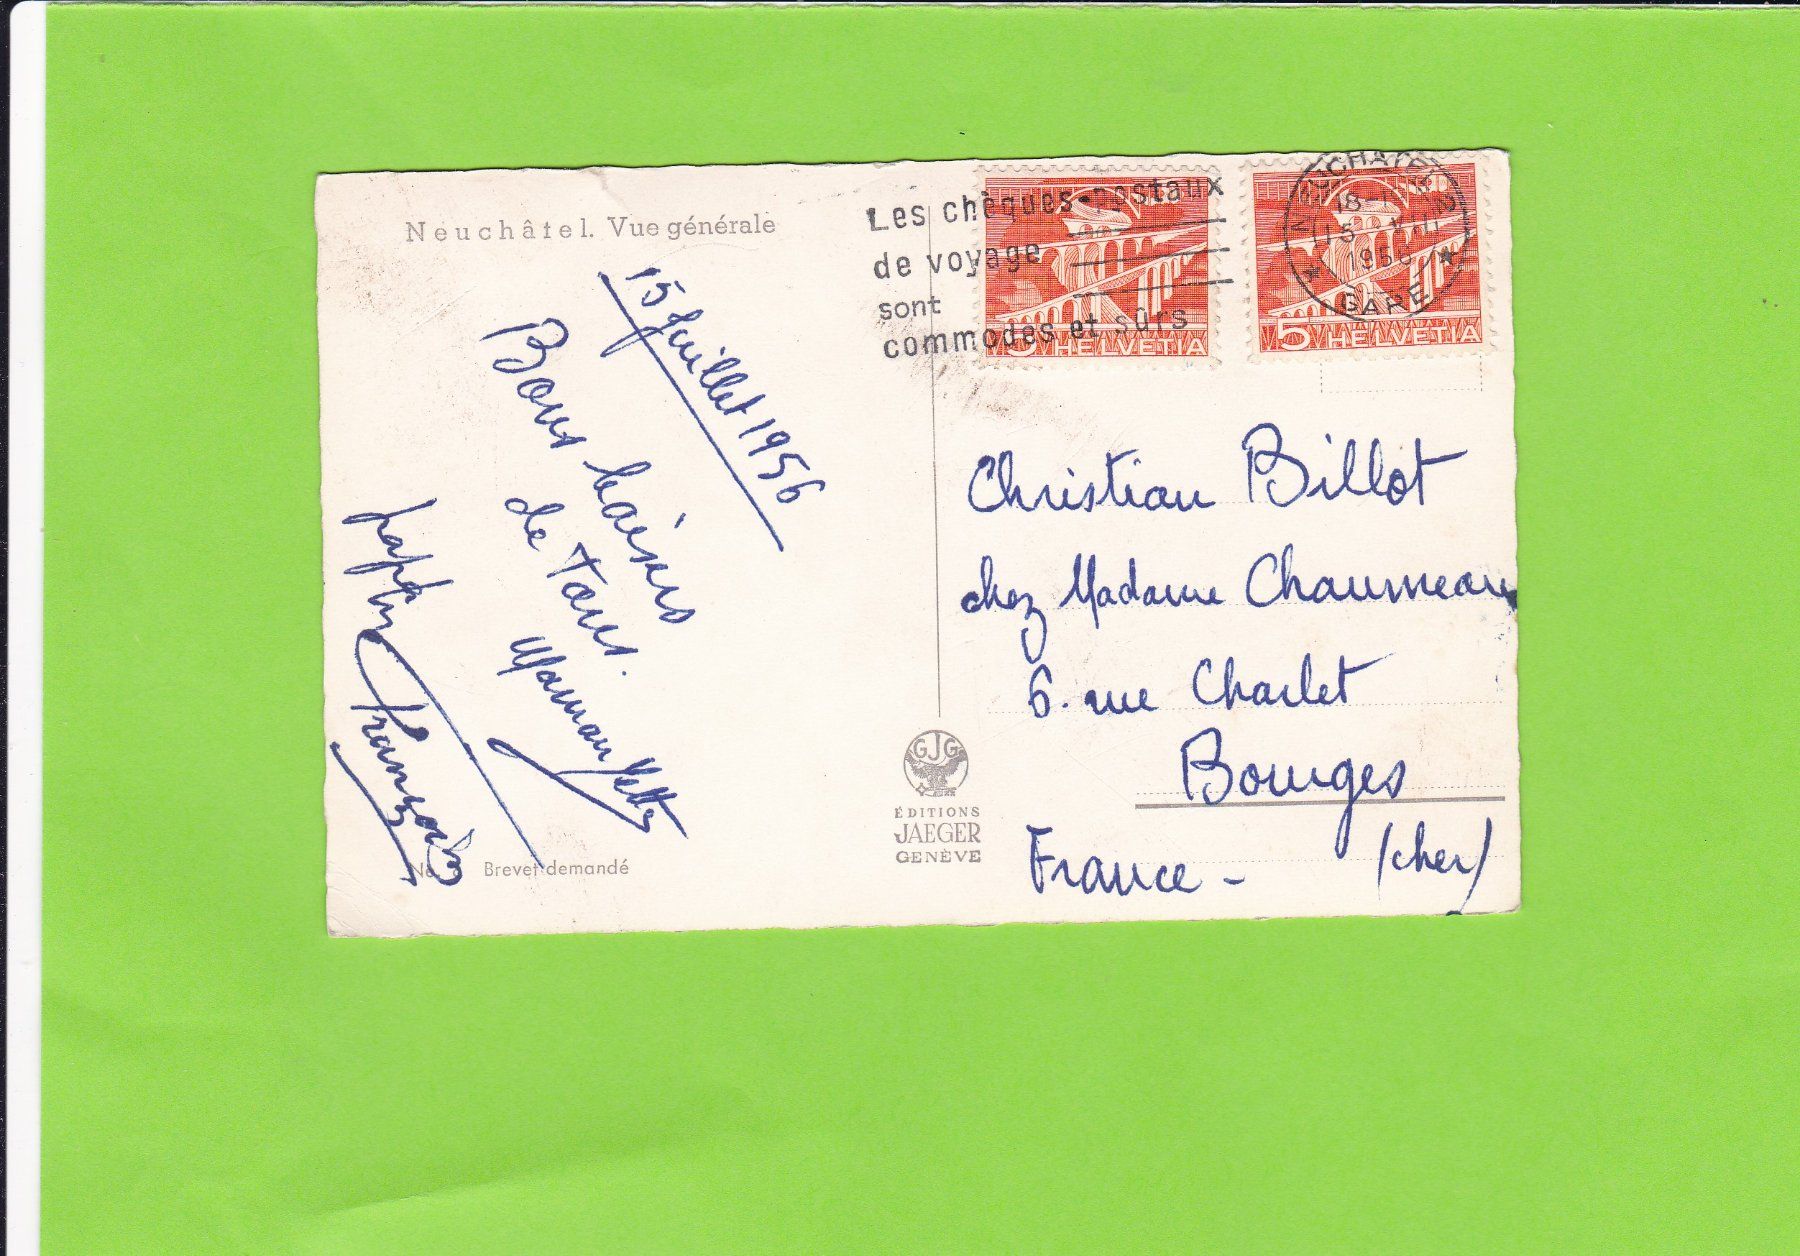 Neuchâtel. Vue générale
15 Juillet 1956
Bons baisers
de Tous.
Maman Yette
papa
François
No Brevet demandé
Les chèques-postaux
de voyage
sont
commodes et sûrs
NEUCHÂTEL 2
18-
15. VII
1956
GARE
5 HELVETIA
5 HELVETIA
Christian Billot
chez Madame Chaumeau
6. rue Charlet
Bourges
France - (cher)
GJG
ÉDITIONS
JAEGER
GENÈVE